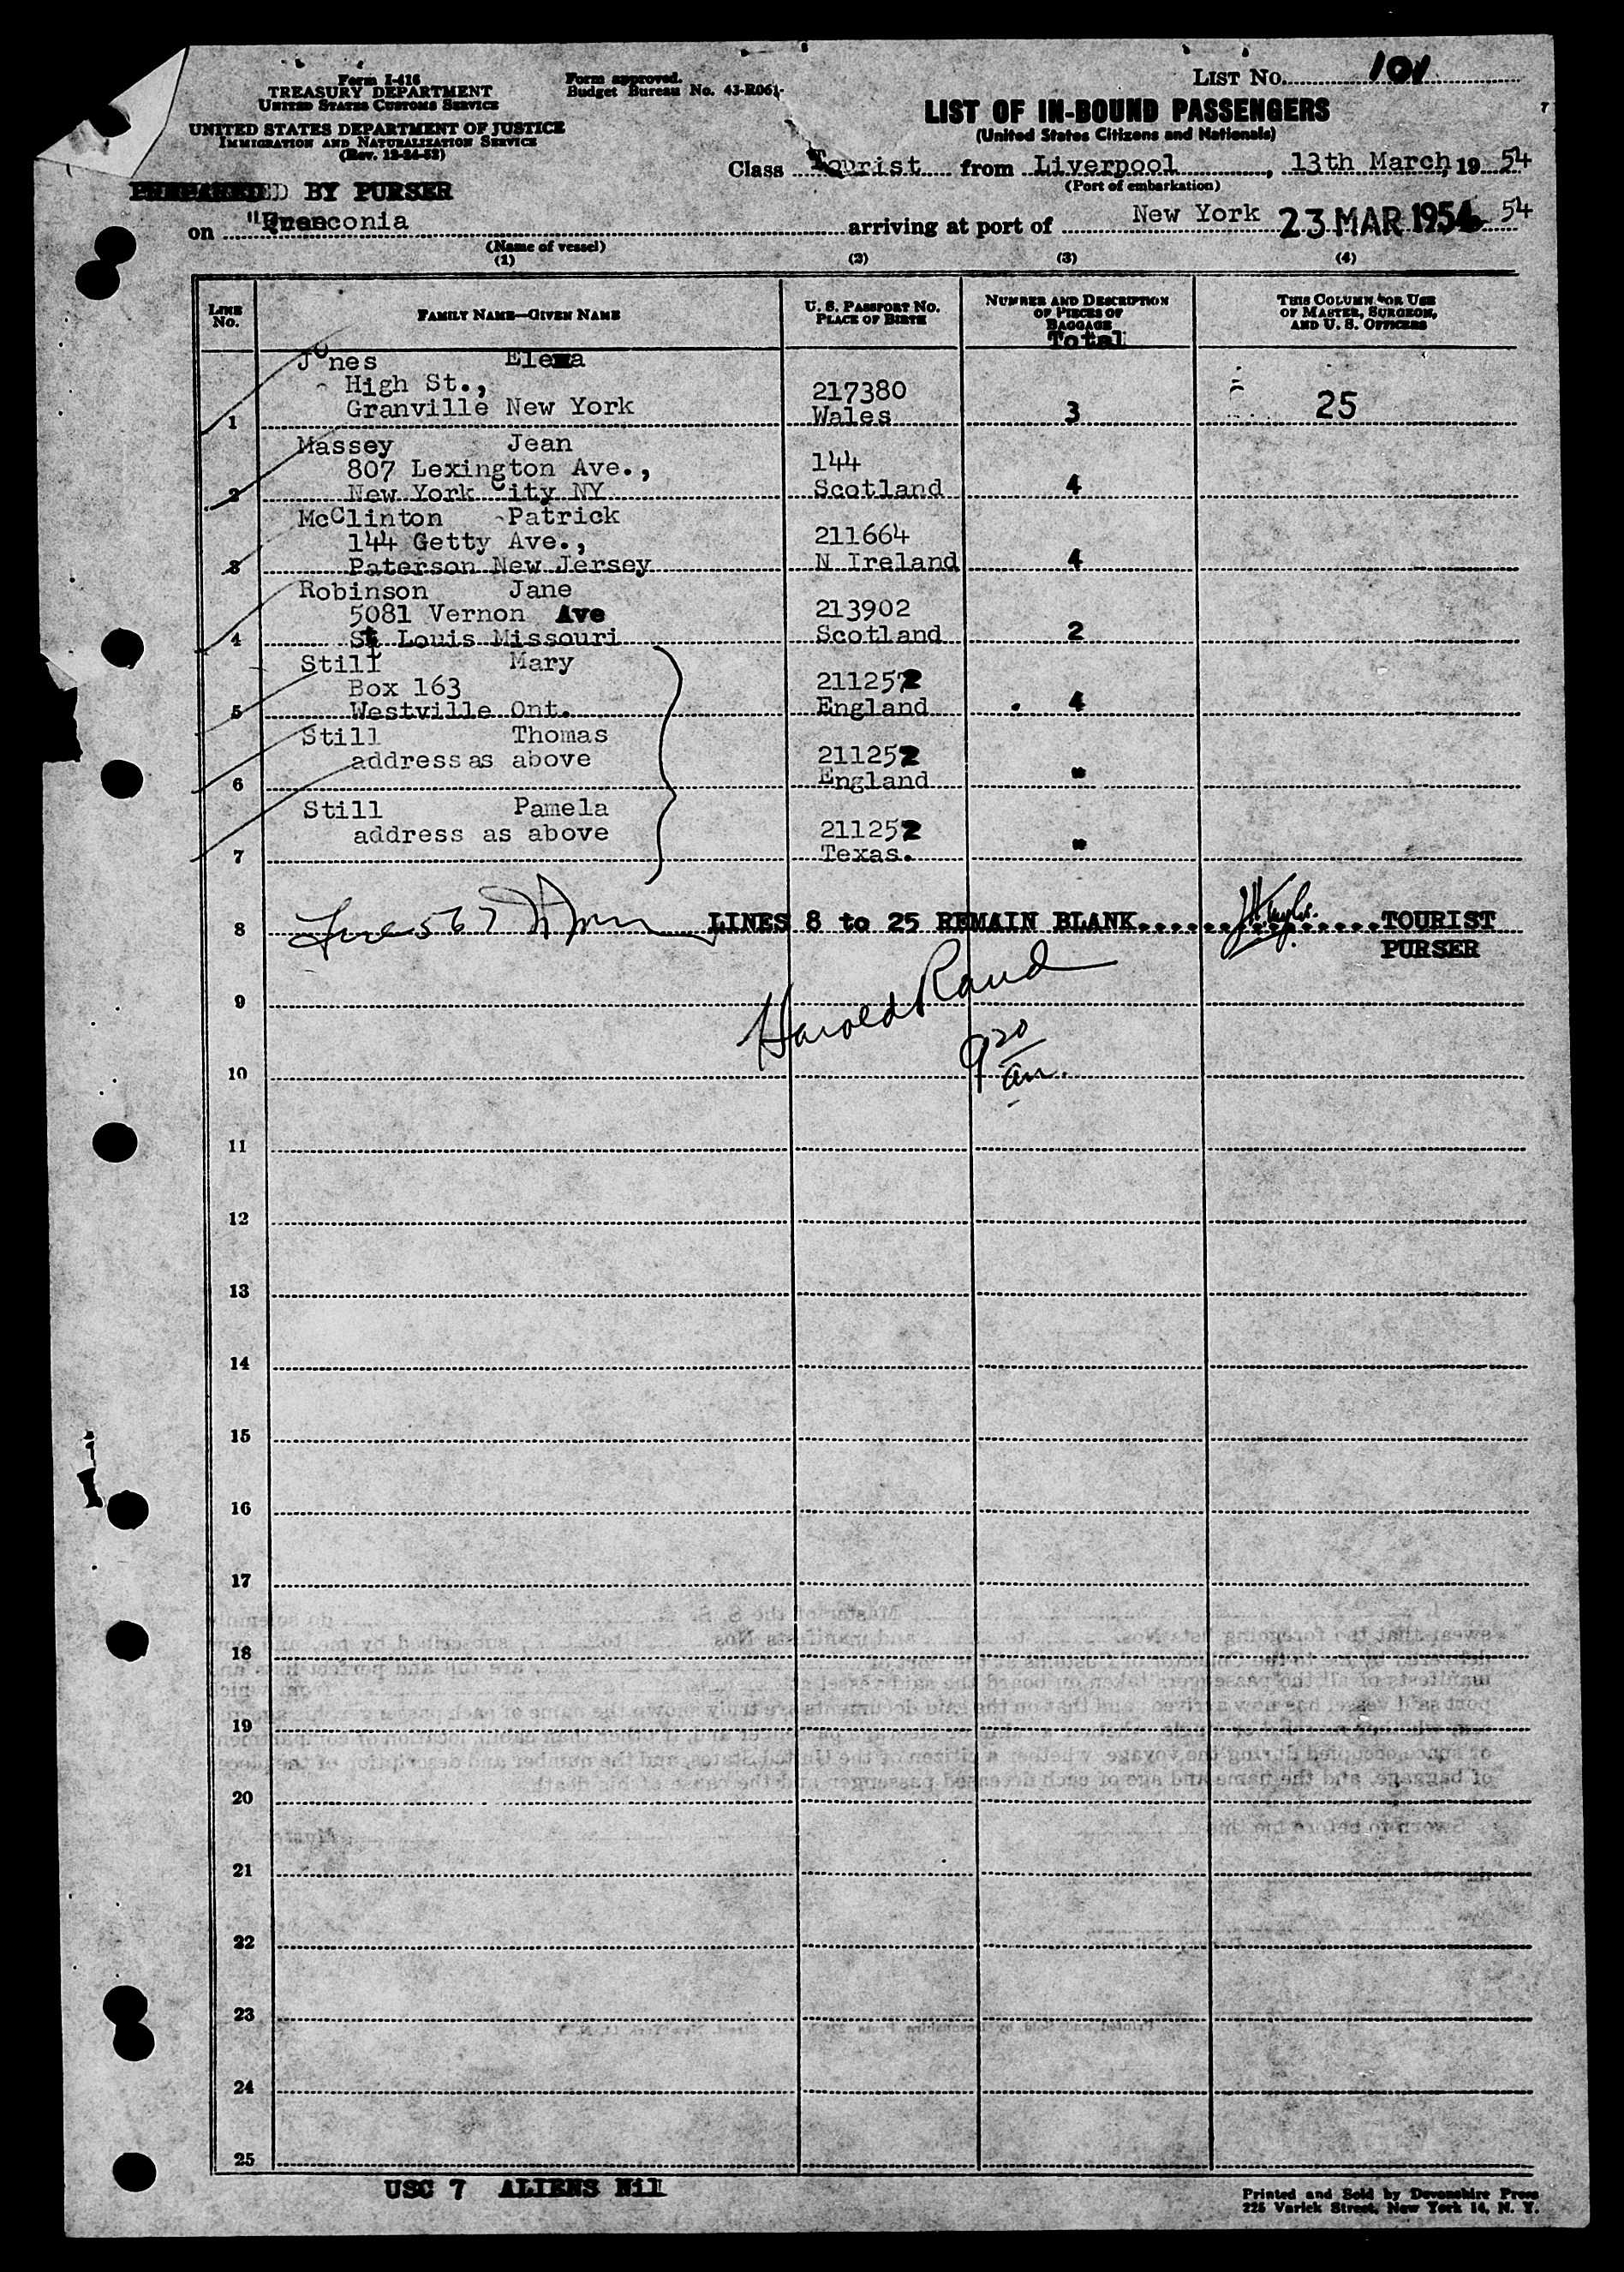 LIST NO. 101
Form I-416
TREASURY DEPARTMENT
UNITED STATES CUSTOMS SERVICE
Form approved.
Budget Bureau No. 43-R061.
UNITED STATES DEPARTMENT OF JUSTICE
IMMIGRATION AND NATURALIZATION SERVICE
(Rev. 12-24-52)
LIST OF IN-BOUND PASSENGERS
(United States Citizens and Nationals)
Class Tourist from Liverpool, 13th March, 19 54
(Port of embarkation)
PREPARED BY PURSER
on arriving at port of New York 23 MAR 1954 54
(Name of vessel)
(1) (2) (3) (4)
LINE No. FAMILY NAME—GIVEN NAME U. S. PASSPORT NO. PLACE OF BIRTH NUMBER AND DESCRIPTION OF PIECES OF BAGGAGE Total THIS COLUMN FOR USE OF MASTER, SURGEON, AND U. S. OFFICERS
Jones
High St., 217380
1 Granville New York Wales 3 25
Massey Jean
807 Lexington Ave., 144
2 New York City NY Scotland 4
McClinton Patrick
144 Getty Ave., 211664
3 Paterson New Jersey N Ireland 4
Robinson Jane
5081 Vernon Ave 213902
4 St Louis Missouri Scotland 2
Still Mary
Box 163 211252
5 Westville Ont. England 4
Still Thomas
address as above 211252
6 England "
Still Pamela
address as above 211252
7 Texas. "
8 LINES 8 to 25 REMAIN BLANK TOURIST
PURSER
9 Harold Rand
9 20 am.
10
11
12
13
14
15
16
17
18
19
20
21
22
23
24
25
USC 7 ALIENS Nil
Printed and Sold by Devonshire Press
225 Varick Street, New York 14, N. Y.